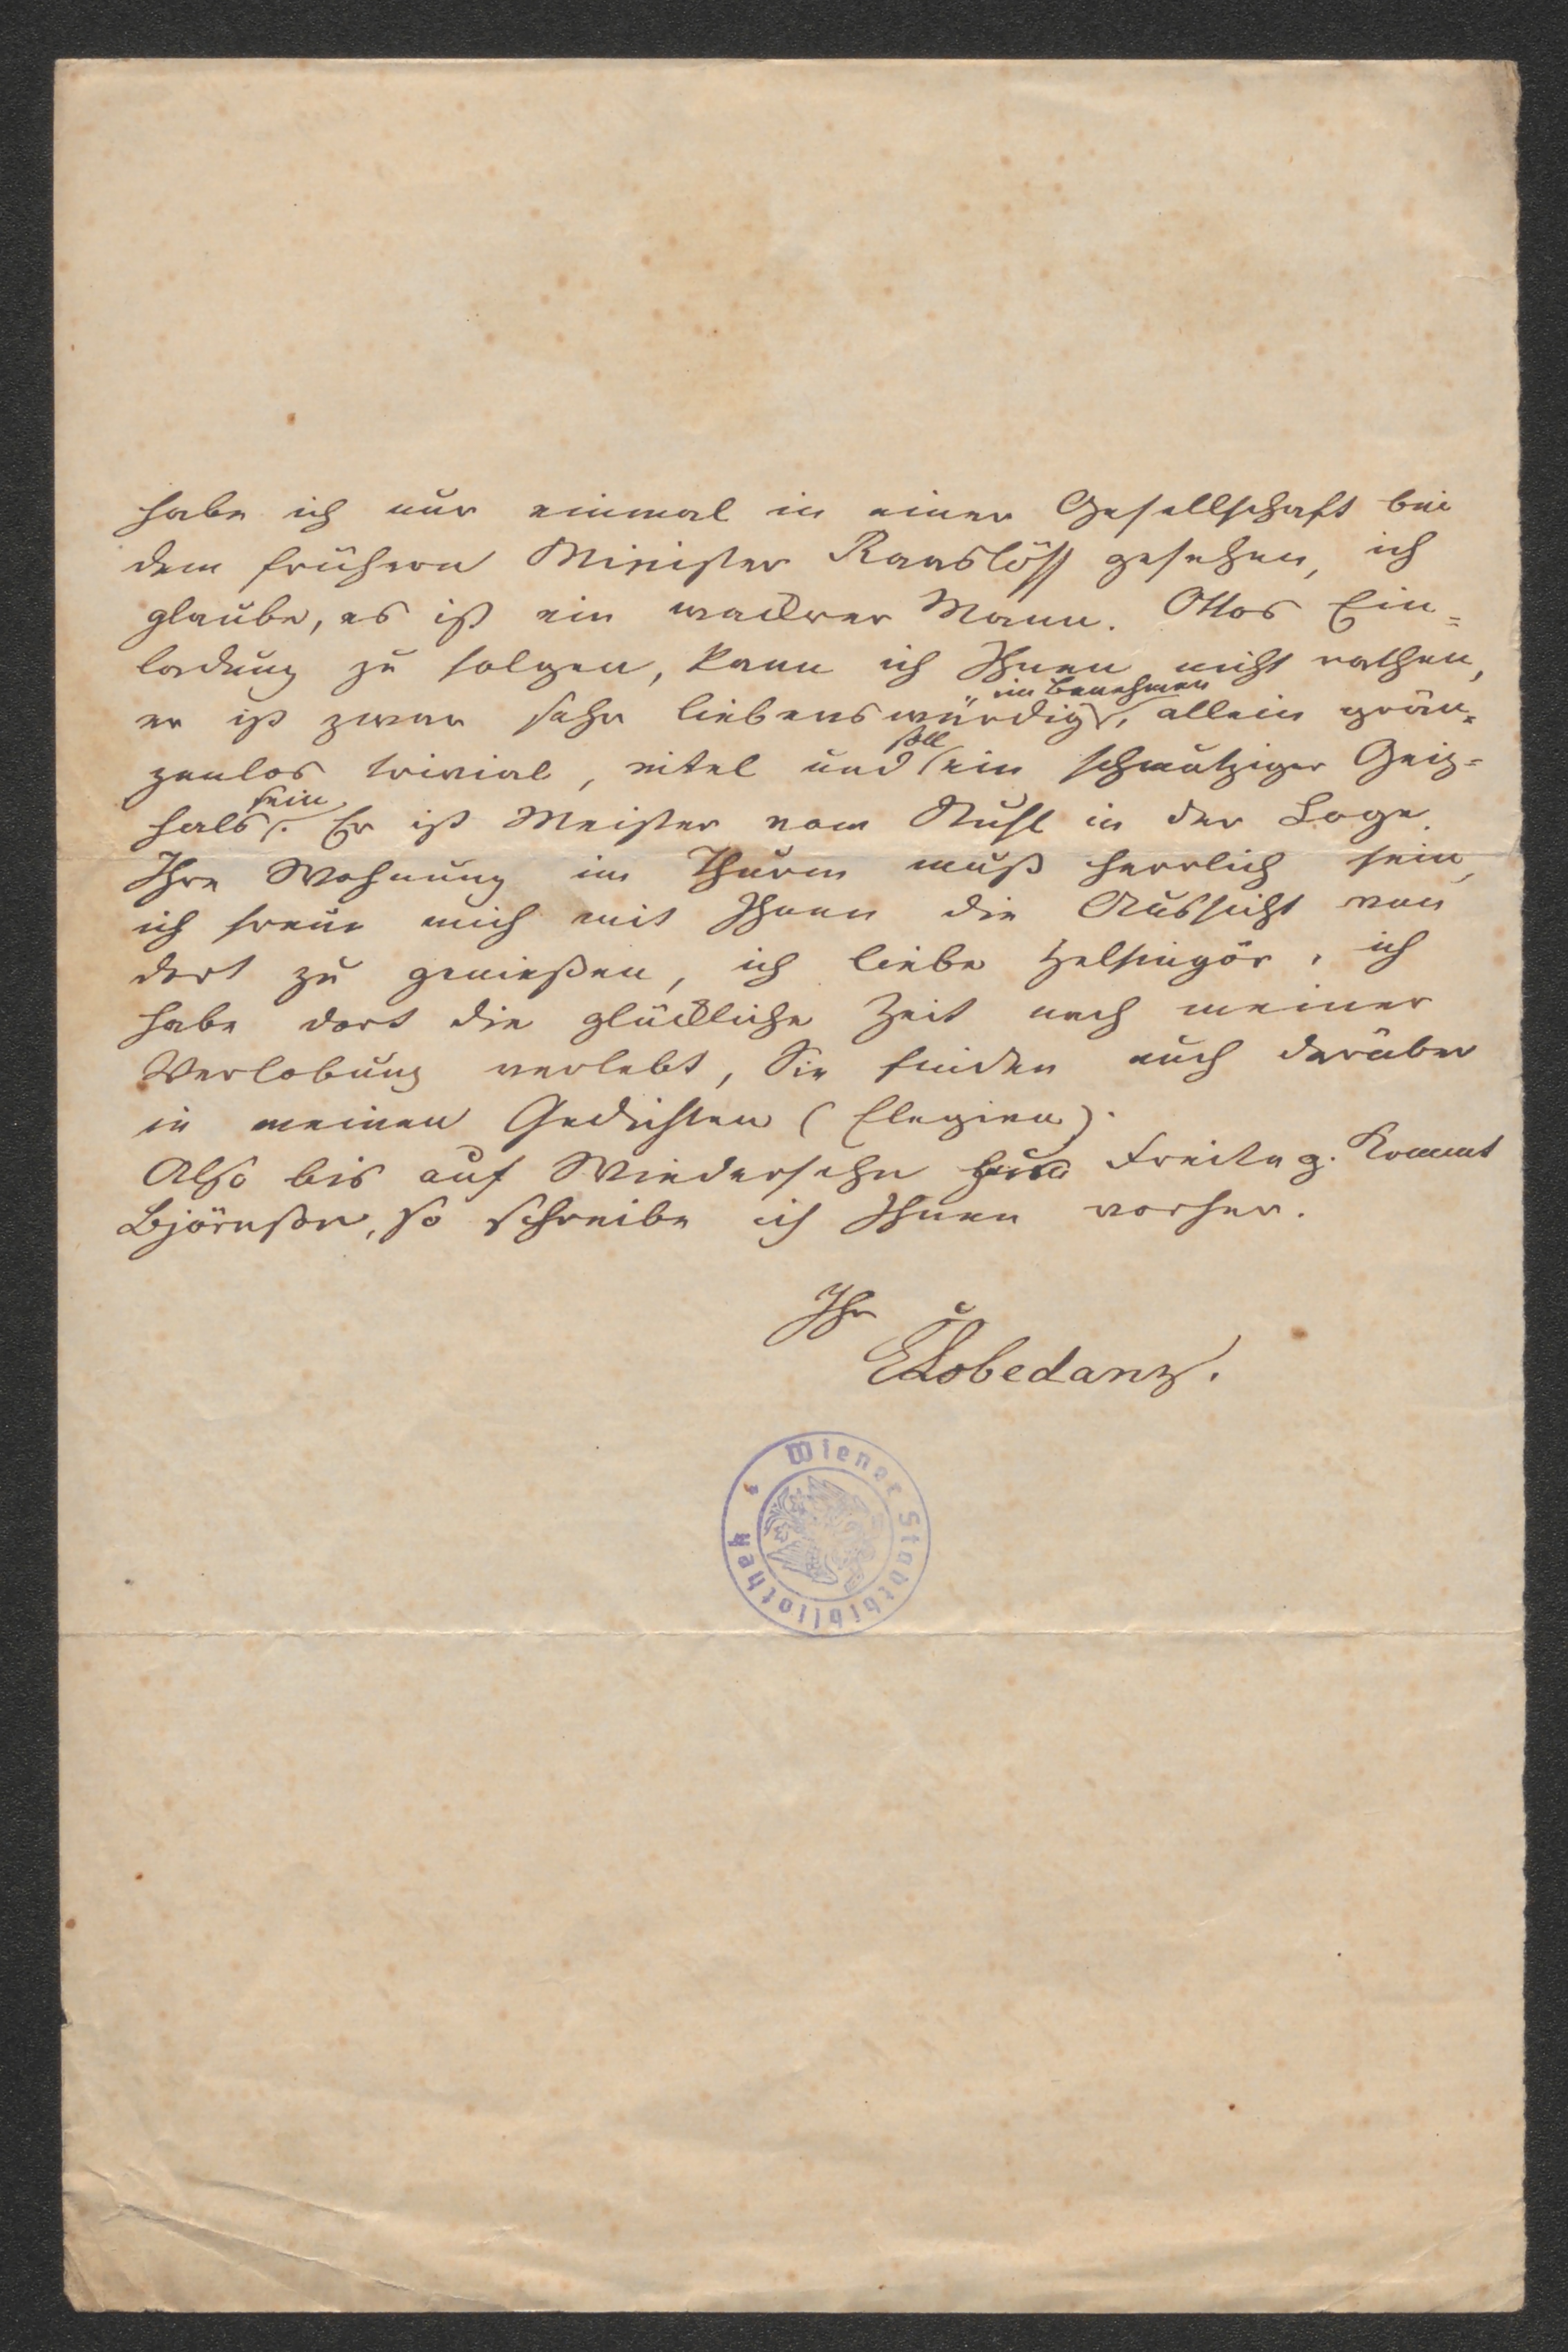 habe ich nur einmal in einer Gesellschaft bei
dem frühern Minister Raaslöff gesehen, ich
glaube, es ist ein wackrer Mann. Ottos Ein=
ladung zu folgen, kann ich Ihnen nicht rathen,
im Benehmen
er ist zwar sehr liebenswürdig, allein grän=
soll
zenlos trivial, eitel und ein schmutziger Geiz=
sein
hals. Er ist Meister vom Stuhl in der Loge.
Ihre Wohnung im Thurm muß herrlich sein,
ich freue mich mit Ihnen die Aussicht von
dort zu genießen, ich liebe Helsingör, ich
habe dort die glückliche Zeit nach meiner
Verlobung verlebt, Sie finden auch darüber
in meinen Gedichten (Elegien).
Also bis auf Wiedersehn Freitag. Kommt
Björnson, so schreibe ich Ihnen vorher.
Ihr
ELobedanz.
Wiener Stadtbibliothek